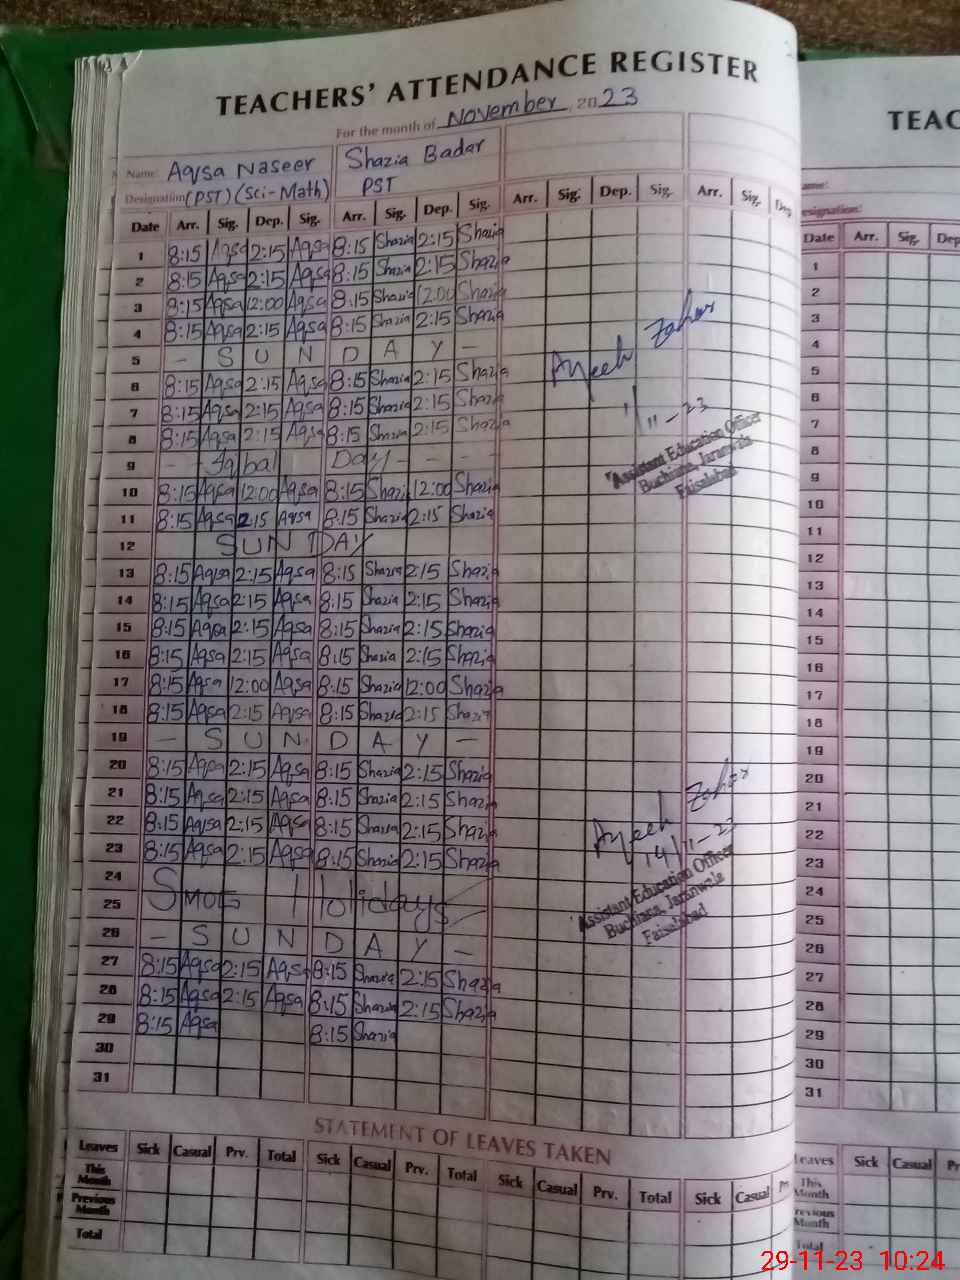 TEACHERS' ATTENDANCE REGISTER
For the month of November, 2023
Name: Aqsa Naseer Shazia Badar
Designation (PST) (Sci-Math) PST
Date Arr. Sig. Dep. Sig. Arr. Sig. Dep. Sig. Arr. Sig. Dep. Sig. Arr. Sig. Dep
1 8:15 Aqsa 2:15 Aqsa 8:15 Shazia 2:15 Shazia
2 8:15 Aqsa 2:15 Aqsa 8:15 Shazia 2:15 Shazia
3 8:15 Aqsa 12:00 Aqsa 8:15 Shazia 12:00 Shazia
4 8:15 Aqsa 2:15 Aqsa 8:15 Shazia 2:15 Shazia
5 - S U N D A Y -
6 8:15 Aqsa 2:15 Aqsa 8:15 Shazia 2:15 Shazia
7 8:15 Aqsa 2:15 Aqsa 8:15 Shazia 2:15 Shazia
8 8:15 Aqsa 2:15 Aqsa 8:15 Shazia 2:15 Shazia
9 - - Iqbal Day - - - -
10 8:15 Aqsa 12:00 Aqsa 8:15 Shazia 12:00 Shazia
11 8:15 Aqsa 2:15 Aqsa 8:15 Shazia 2:15 Shazia
12 SUNDAY
13 8:15 Aqsa 2:15 Aqsa 8:15 Shazia 2:15 Shazia
14 8:15 Aqsa 2:15 Aqsa 8:15 Shazia 2:15 Shazia
15 8:15 Aqsa 2:15 Aqsa 8:15 Shazia 2:15 Shazia
16 8:15 Aqsa 2:15 Aqsa 8:15 Shazia 2:15 Shazia
17 8:15 Aqsa 12:00 Aqsa 8:15 Shazia 12:00 Shazia
18 8:15 Aqsa 2:15 Aqsa 8:15 Shazia 2:15 Shazia
19 - S U N D A Y -
20 8:15 Aqsa 2:15 Aqsa 8:15 Shazia 2:15 Shazia
21 8:15 Aqsa 2:15 Aqsa 8:15 Shazia 2:15 Shazia
22 8:15 Aqsa 2:15 Aqsa 8:15 Shazia 2:15 Shazia
23 8:15 Aqsa 2:15 Aqsa 8:15 Shazia 2:15 Shazia
24
25 Smog Holidays
26 - S U N D A Y -
27 8:15 Aqsa 2:15 Aqsa 8:15 Shazia 2:15 Shazia
28 8:15 Aqsa 2:15 Aqsa 8:15 Shazia 2:15 Shazia
29 8:15 Aqsa 8:15 Shazia
30
31
11-23
Assistant Education Officer
Buchiana, Jaranwala
Faisalabad
14/11-23
Assistant Education Officer
Buchiana, Jaranwala
Faisalabad
STATEMENT OF LEAVES TAKEN
Leaves Sick Casual Prv. Total Sick Casual Prv. Total Sick Casual Prv. Total Sick Casual
This Month
Previous Month
Total
TEAC
ame:
esignation:
Date Arr. Sig. Dep
1
2
3
4
5
6
7
8
9
10
11
12
13
14
15
16
17
18
19
20
21
22
23
24
25
26
27
28
29
30
31
Leaves Sick Casual Pr
This Month
revious Month
Total
29-11-23 10:24